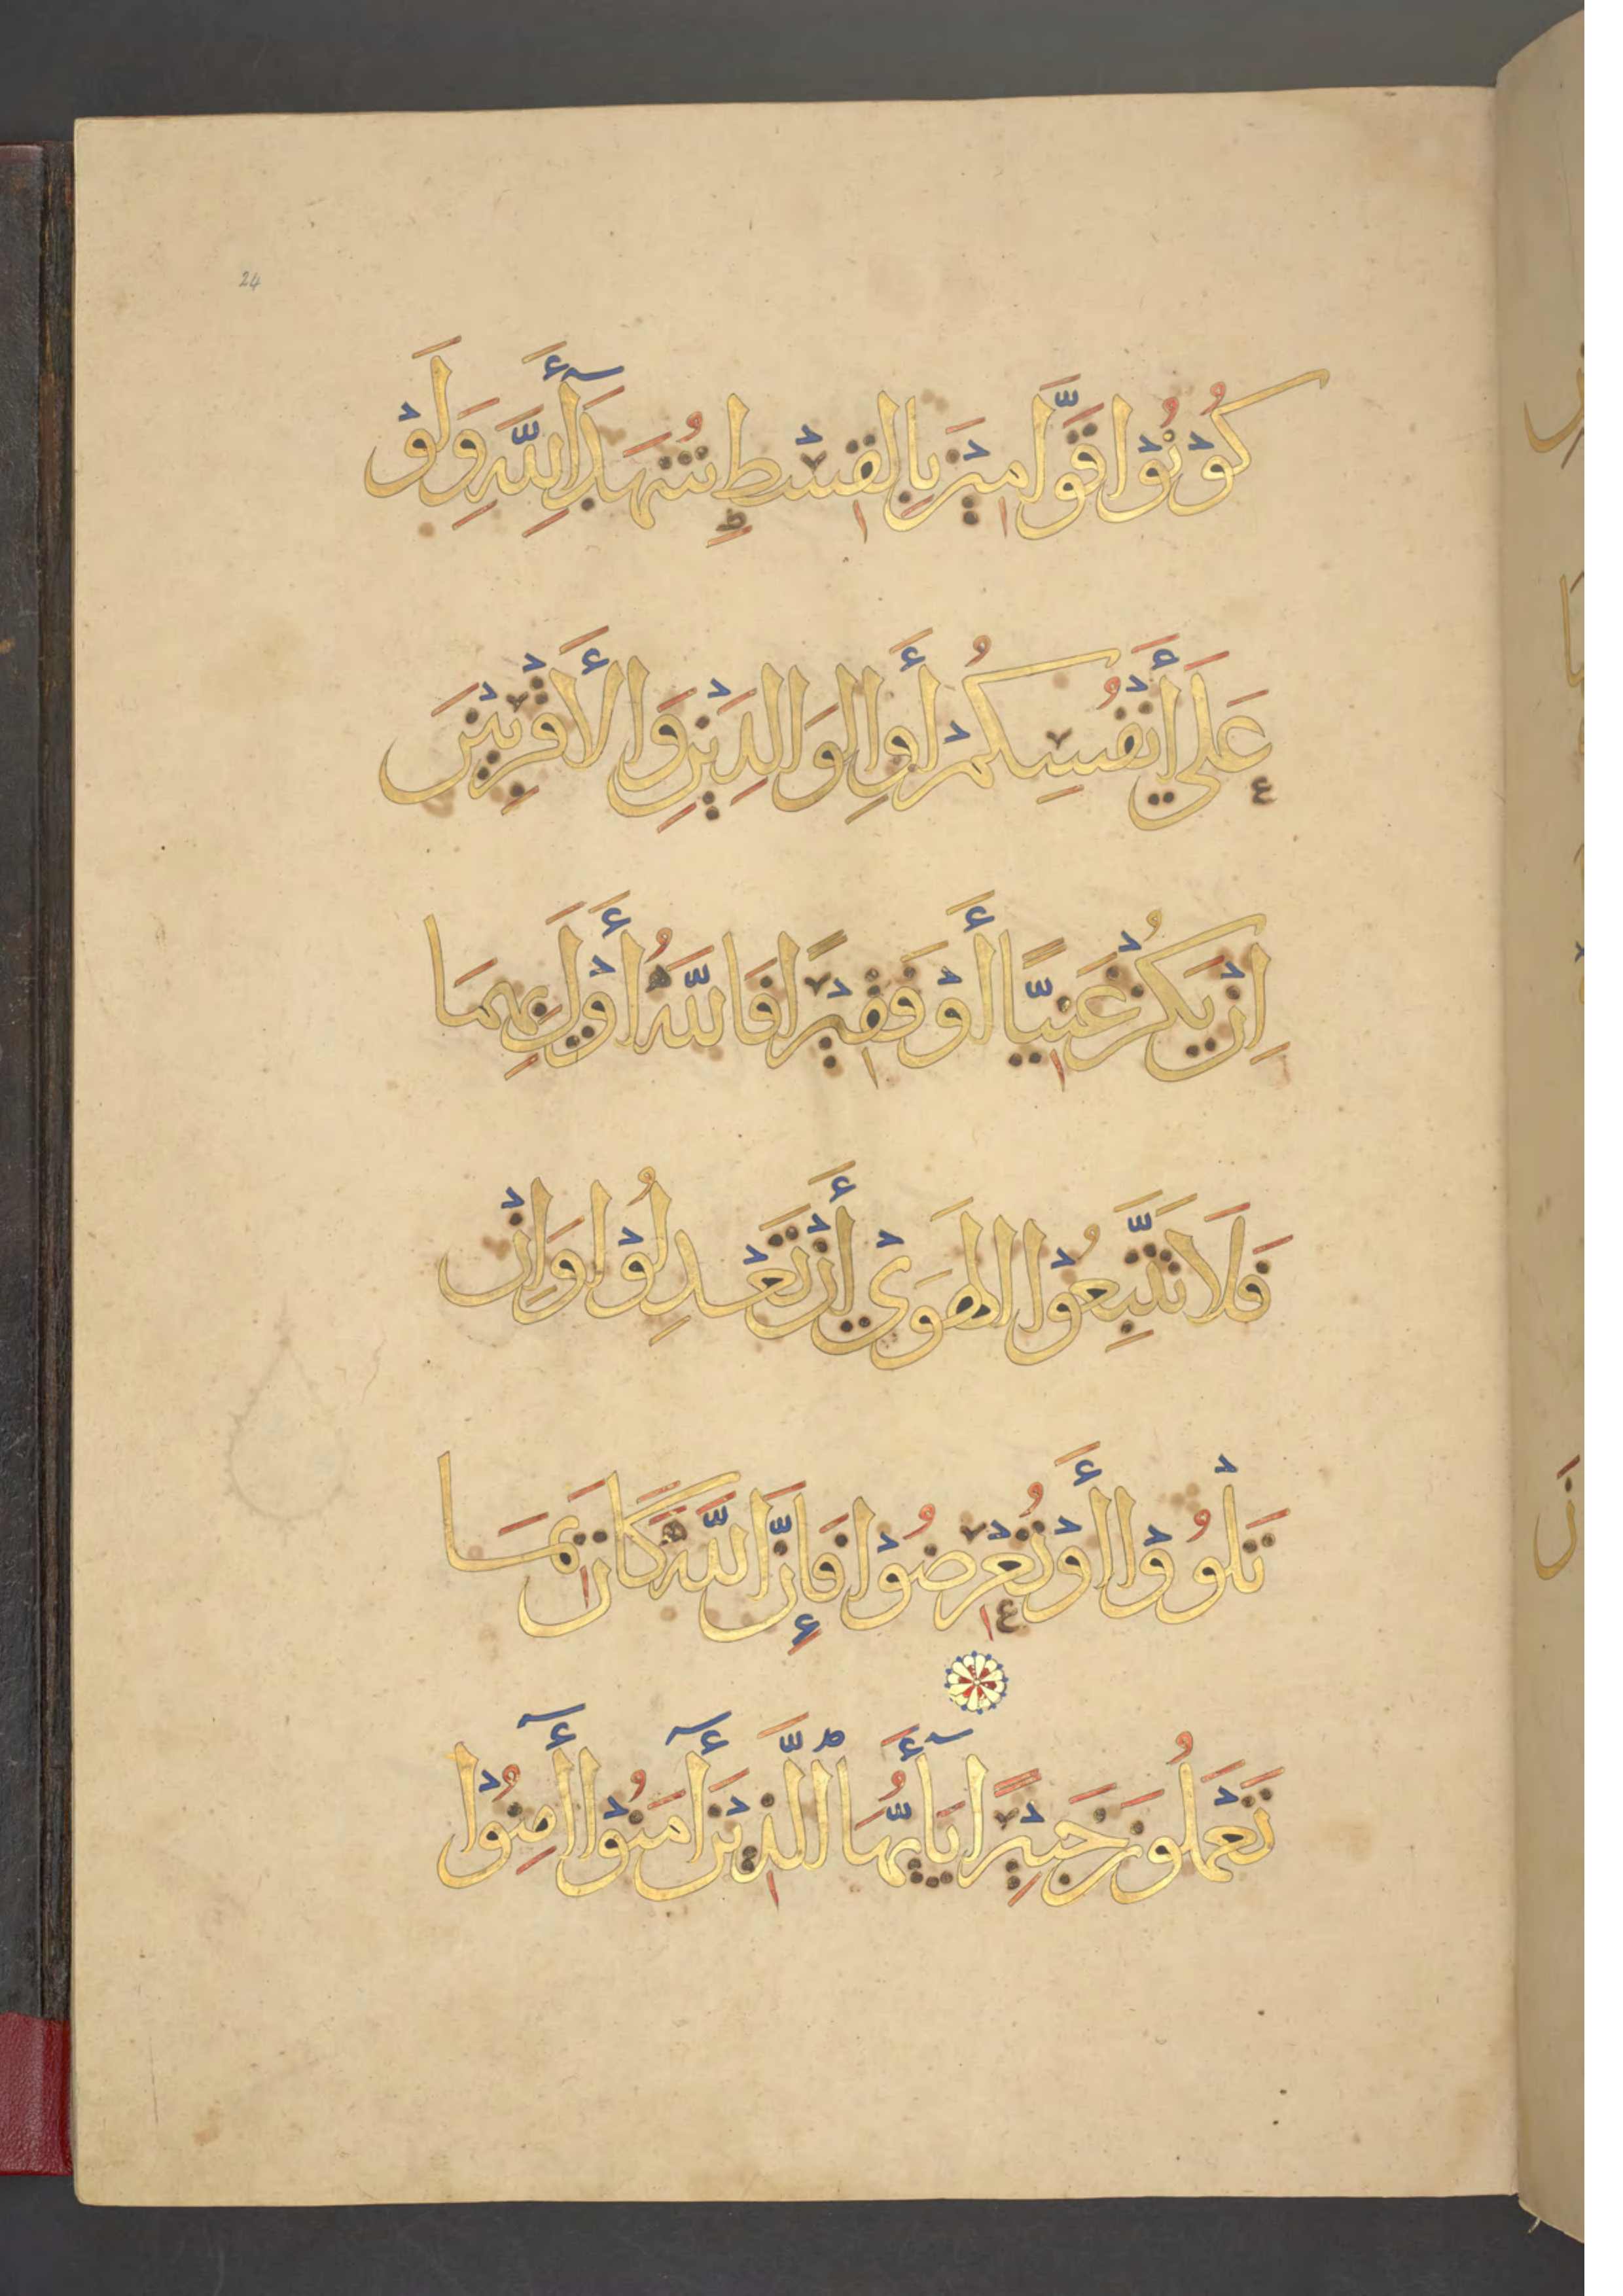 24
كُوْنُوْا قَوَّامِيْنَ بِالقِسْطِ شُهَدَآءَ لِلّٰهِ وَلَوْ
عَلَي أَنْفُسِكُمْ أَوِ الوَالِدَيْنِ وَالأَقْرَبِيْنَ
اِنْ يَكُنْ غَنِيًّا أَوْ فَقِيْرًا فَاللّٰهُ أَوْلَي بِهِمَا
فَلَا تَتَّبِعُوْا الهَوَيْ أَنْ تَعْدِلُوْا وَاِنْ
تَلْوُوْا أَوْ تُعْرِضُوْا فَإِنَّ اللّٰهَ كَانَ بِمَا
تَعْمَلُونَ خَبِيْرًا يَآ أَيُّهَا الَّذِيْنَ أٓمَنُوْا أٓمِنُوْا